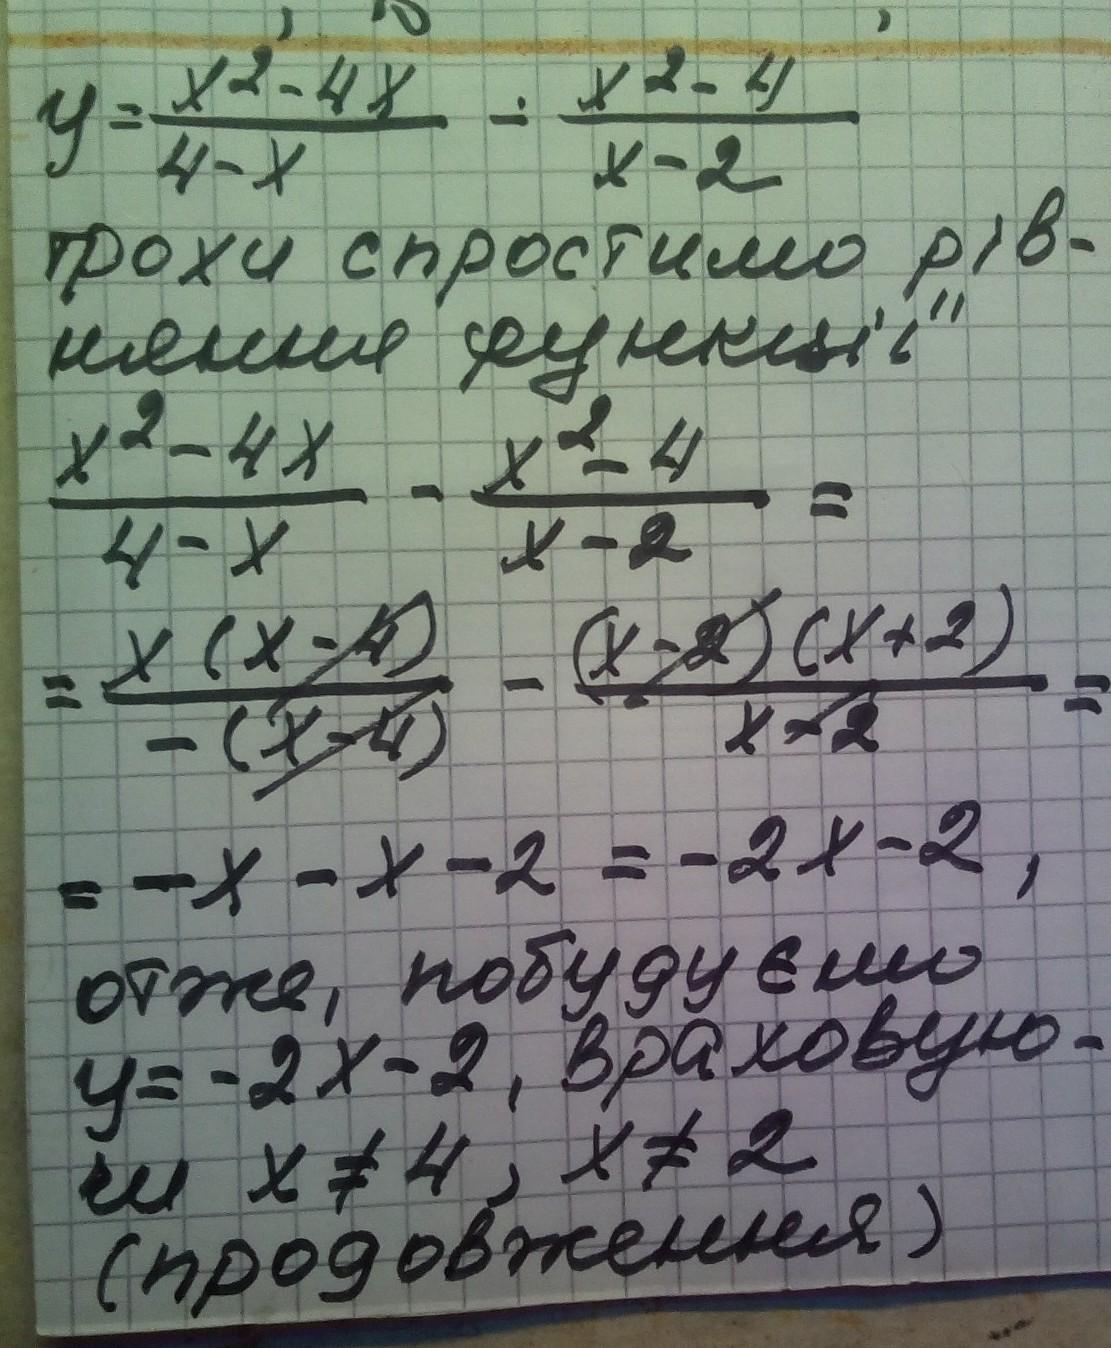 y = (x² - 4x)/(4 - x) - (x² - 4)/(x - 2)
трохи спростимо рів-
няння функції"
(x² - 4x)/(4 - x) - (x² - 4)/(x - 2) =
= x(x - 4)/(-(x - 4)) - (x - 2)(x + 2)/(x - 2) =
= - x - x - 2 = - 2x - 2 ,
отже, побудуємо
y = - 2x - 2, враховую-
чи x ≠ 4, x ≠ 2
(продовження)